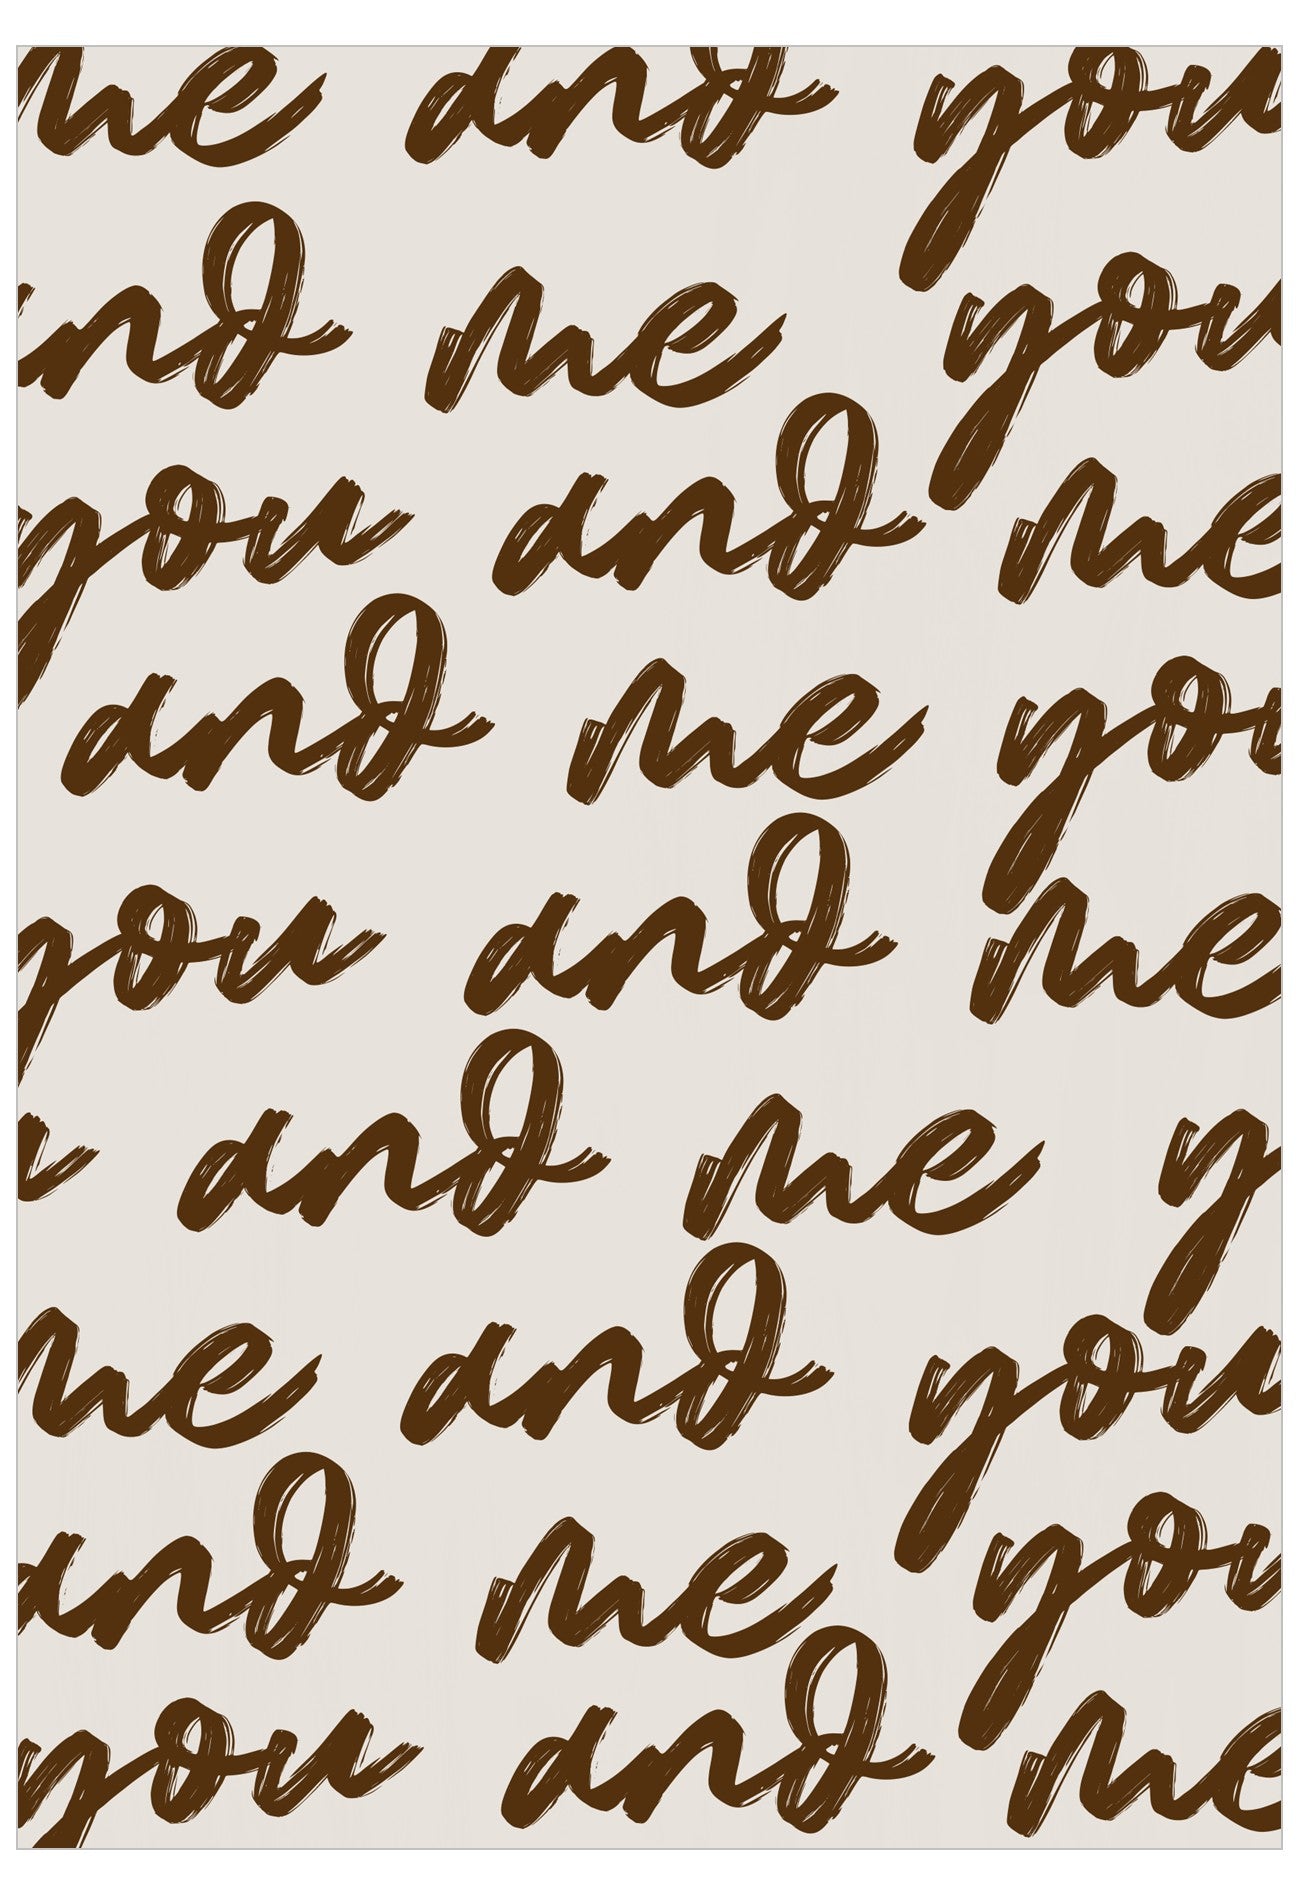 me and you
and me you
you and me
and me you
you and me
u and me y
me and you
and me you
you and me